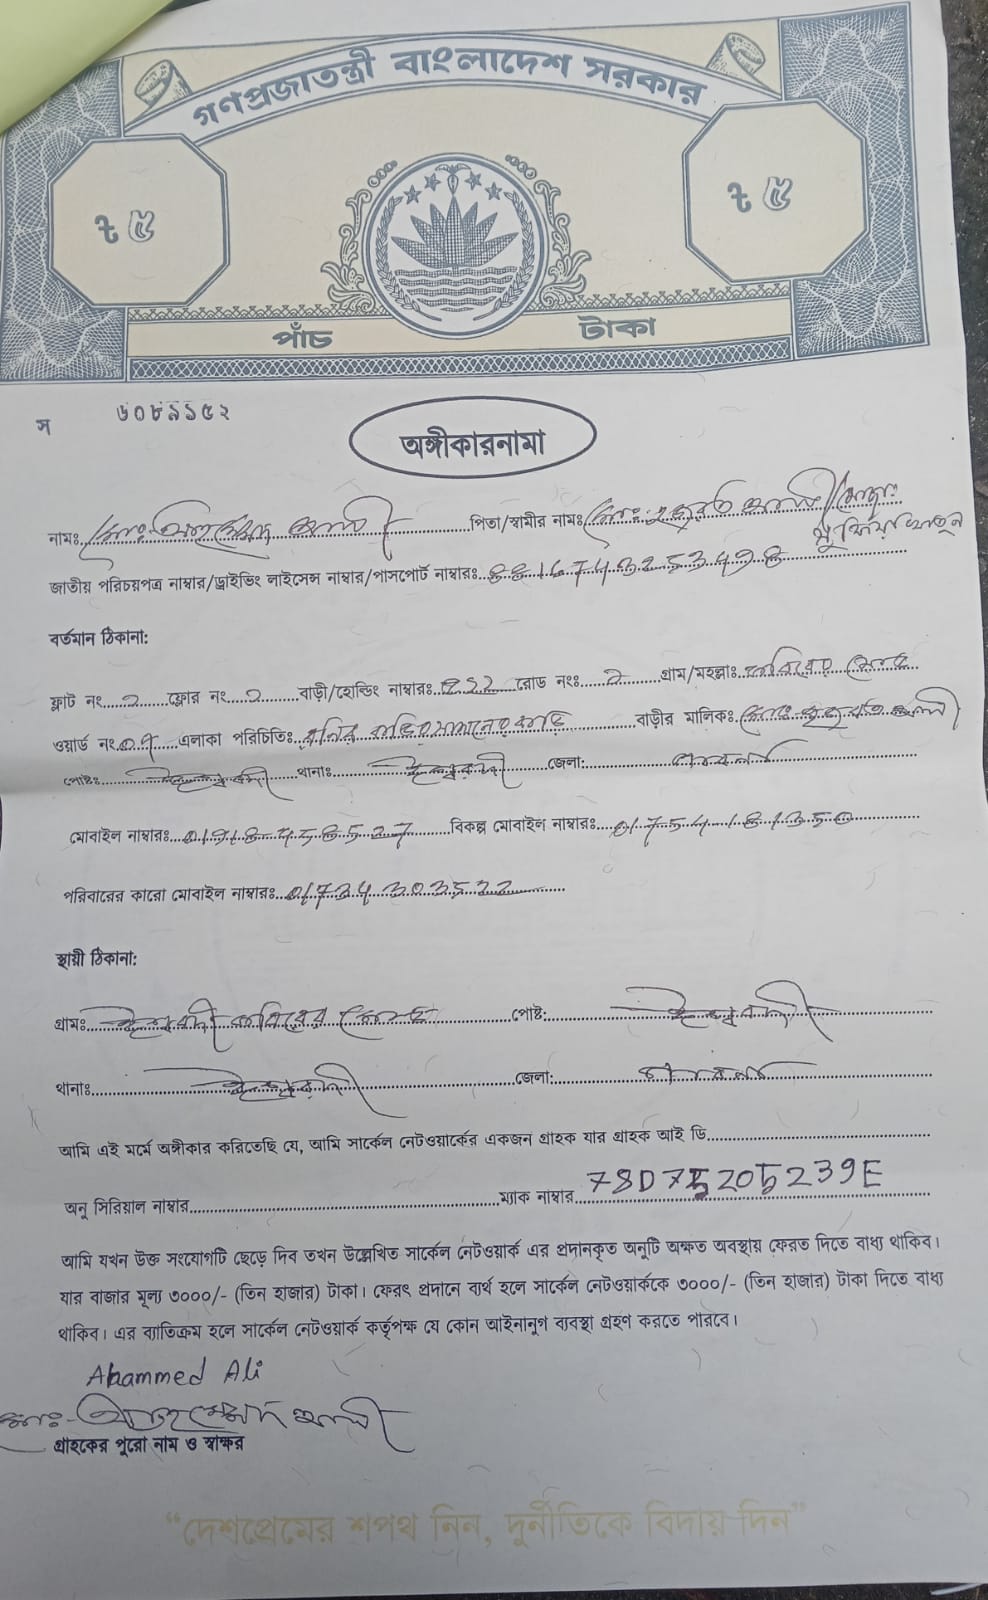 গণপ্রজাতন্ত্রী বাংলাদেশ সরকার
৳ ৫ ৳ ৫
পাঁচ টাকা
স ৬০৮৯১৫২
অঙ্গীকারনামা
নামঃ মোঃ আহম্মেদ আলী পিতা/স্বামীর নামঃ মোঃ হজরত আলী/মোছাঃ
জাতীয় পরিচয়পত্র নাম্বার/ড্রাইভিং লাইসেন্স নাম্বার/পাসপোর্ট নাম্বারঃ
বর্তমান ঠিকানা:
ফ্লাট নং ২ ফ্লোর নং ২ বাড়ী/হোল্ডিং নাম্বারঃ রোড নংঃ ২ গ্রাম/মহল্লাঃ
ওয়ার্ড নং ০৭ এলাকা পরিচিতিঃ বাড়ীর মালিকঃ মোঃ হজরত আলী
পোষ্টঃ ঈশ্বরদী থানাঃ ঈশ্বরদী জেলা: পাবনা
মোবাইল নাম্বারঃ 01918458527 বিকল্প মোবাইল নাম্বারঃ 01754181350
পরিবারের কারো মোবাইল নাম্বারঃ 01734303522
স্থায়ী ঠিকানা:
গ্রামঃ ঈশ্বরদী পোষ্ট: ঈশ্বরদী
থানাঃ ঈশ্বরদী জেলা: পাবনা
আমি এই মর্মে অঙ্গীকার করিতেছি যে, আমি সার্কেল নেটওয়ার্কের একজন গ্রাহক যার গ্রাহক আই ডি
অনু সিরিয়াল নাম্বার ম্যাক নাম্বার 78D75205239E
আমি যখন উক্ত সংযোগটি ছেড়ে দিব তখন উল্লেখিত সার্কেল নেটওয়ার্ক এর প্রদানকৃত অনুটি অক্ষত অবস্থায় ফেরত দিতে বাধ্য থাকিব।
যার বাজার মূল্য ৩০০০/- (তিন হাজার) টাকা। ফেরৎ প্রদানে ব্যর্থ হলে সার্কেল নেটওয়ার্ককে ৩০০০/- (তিন হাজার) টাকা দিতে বাধ্য
থাকিব। এর ব্যাতিক্রম হলে সার্কেল নেটওয়ার্ক কর্তৃপক্ষ যে কোন আইনানুগ ব্যবস্থা গ্রহণ করতে পারবে।
Ahammed Ali
মোঃ আহম্মেদ আলী
গ্রাহকের পুরো নাম ও স্বাক্ষর
“দেশপ্রেমের শপথ নিন, দুর্নীতিকে বিদায় দিন”